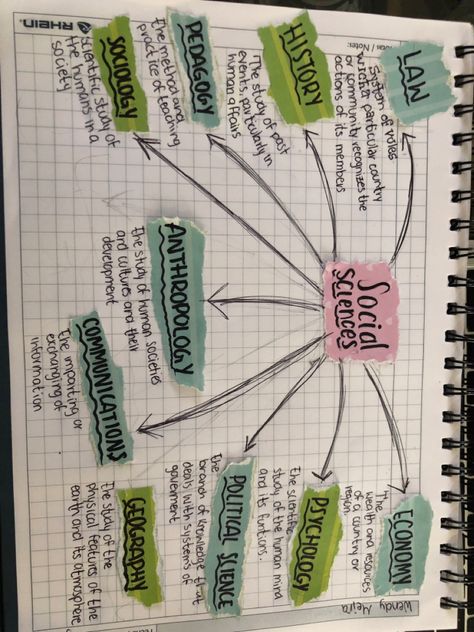 RHEIN.
Notes:
Wendy
Social
Sciences
LAW
System of roles
particular country
or community recognizes the
actions of its members
HISTORY
The study of past
events, particularly in
human affairs
PEDAGOGY
The method and
practice of teaching
SOCIOLOGY
scientific study of
the humans in a
society
ANTHROPOLOGY
the study of human societies
and cultures and their
development
COMMUNICATIONS
the imparting or
exchanging of
information
GEOGRAPHY
the study of the
physical features of the
earth and its atmosphere
POLITICAL SCIENCE
the
branch of knowledge that
deals with systems of
goverment
PSYCHOLOGY
the scientific
study of the human mind
and its funtions.
ECONOMY
The
wealth and resources
of a country or
region